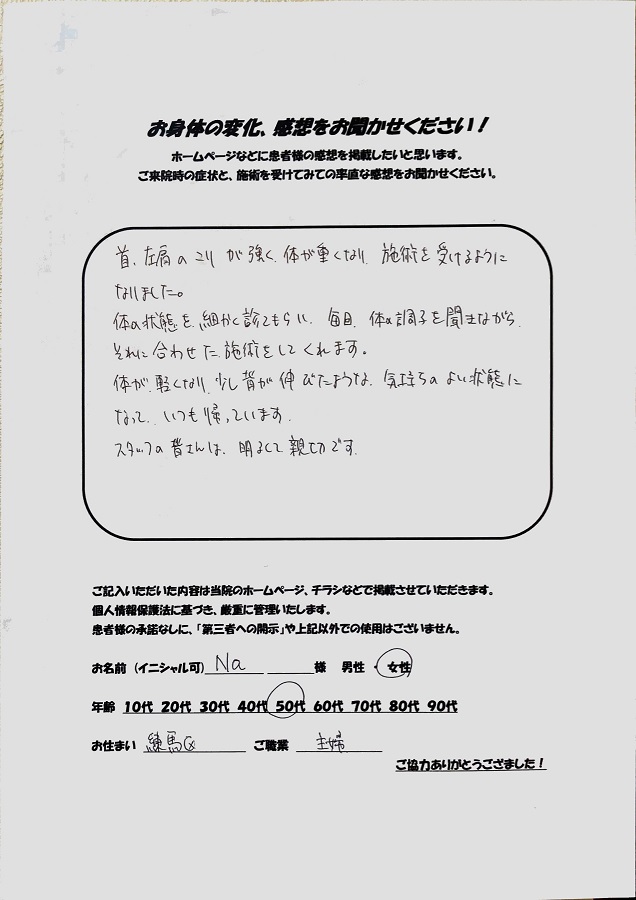 お身体の変化、感想をお聞かせください！
ホームページなどに患者様の感想を掲載したいと思います。
ご来院時の症状と、施術を受けてみての率直な感想をお聞かせください。
首、左肩のこりが強く、体が重くなり、施術を受けるように
なりました。
体の状態を、細かく診てもらい、毎回、体の調子を聞きながら、
それに合わせた、施術をしてくれます。
体が、軽くなり、少し背が伸びたような、気持ちのよい状態に
なって、いつも帰っています。
スタッフの皆さんは、明るくて親切です。
ご記入いただいた内容は当院のホームページ、チラシなどで掲載させていただきます。
個人情報保護法に基づき、厳重に管理いたします。
患者様の承諾なしに、「第三者への開示」や上記以外での使用はございません。
お名前（イニシャル可） Na 様 男性・女性
年齢 10代 20代 30代 40代 50代 60代 70代 80代 90代
お住まい 練馬区 ご職業 主婦
ご協力ありがとうございました！